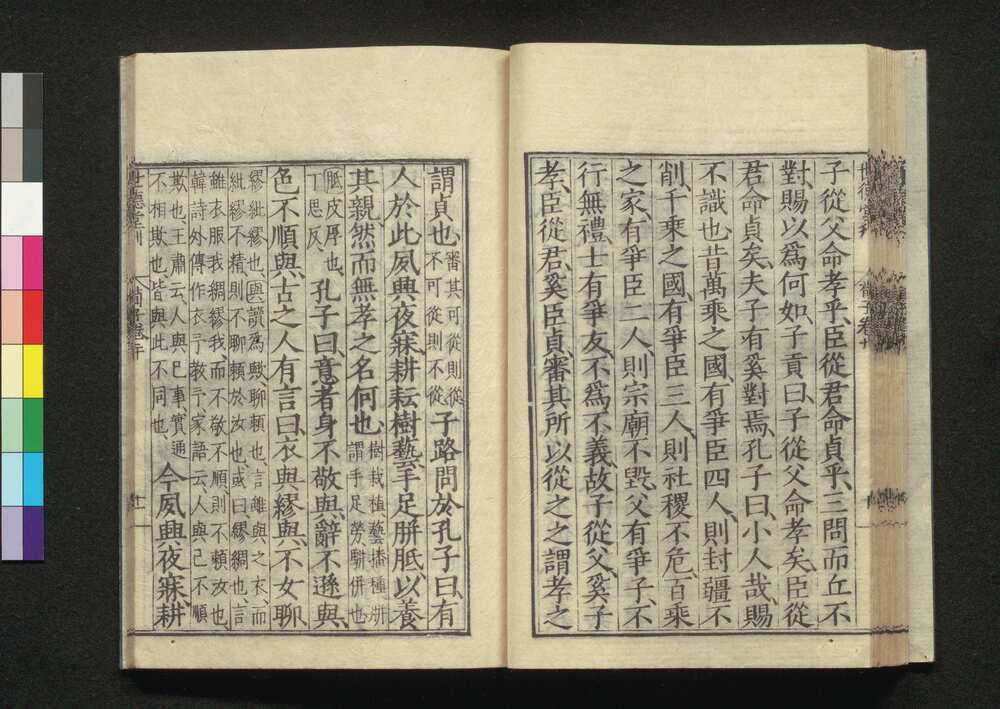 子從父命孝乎、臣從君命貞乎、三問而丘不
對、賜以爲何如、子貢曰、子從父命孝矣、臣從
君命貞矣、夫子有奚對焉、孔子曰、小人哉、賜
不識也、昔萬乘之國、有爭臣四人、則封疆不
削、千乘之國、有爭臣三人、則社稷不危、百乘
之家、有爭臣二人、則宗廟不毀、父有爭子、不
行無禮、士有爭友、不爲不義、故子從父、奚子
孝、臣從君、奚臣貞、審其所以從之之謂孝之
謂貞也、審其可從則從不可從則不從 子路問於孔子曰、有
人於此、夙興夜寐、耕耘樹藝、手足胼胝、以養
其親、然而無孝之名何也、樹栽植藝播種胼謂手足勞駢併也
胝皮厚也、丁思反、 孔子曰、意者身不敬與、辭不遜與、
色不順與、古之人有言曰、衣與繆與、不女聊、
繆紕繆也、與讀爲歟聊賴也言雖與之衣而
紕繆不精則不聊賴於汝也或曰繆綢也、言
雖衣服我綢繆我、而不敬不順、則不賴汝也、
韓詩外傳作衣予教予家語云人與己不順
欺也王肅云、人與已事實通
不相欺也、皆與此不同也、 今夙興夜寐、耕
世德堂刊
荀子卷二十
十一